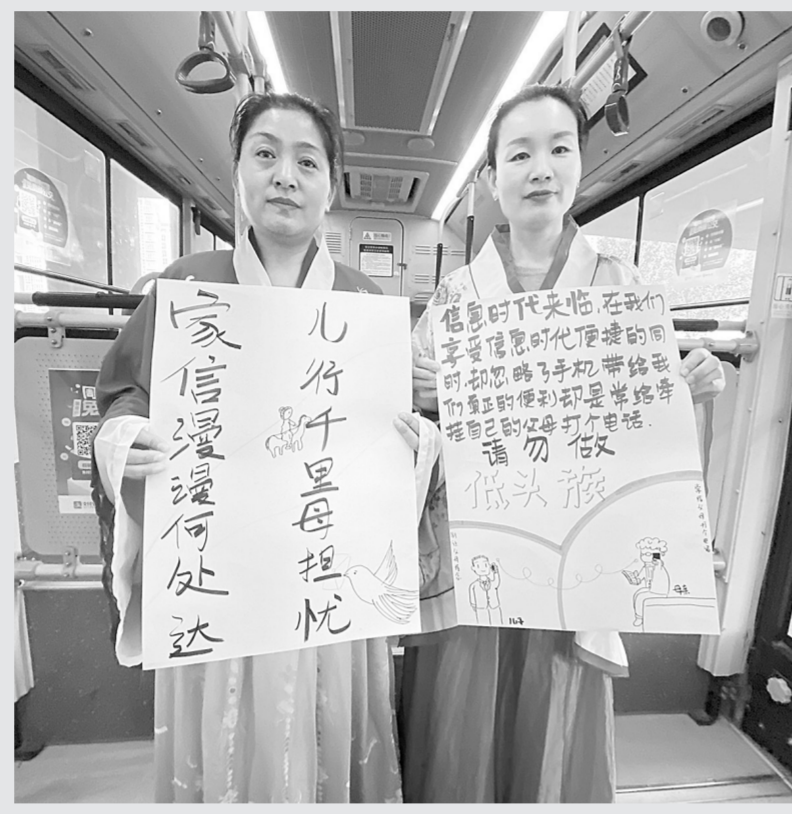 儿行千里母担忧
家信漫漫何处达
信息时代来临,在我们
享受信息时代便捷的同
时,却忽略了手机带给我
们真正的便利却是常给牵
挂自己的父母打个电话.
请勿做
低头族
儿子
母亲